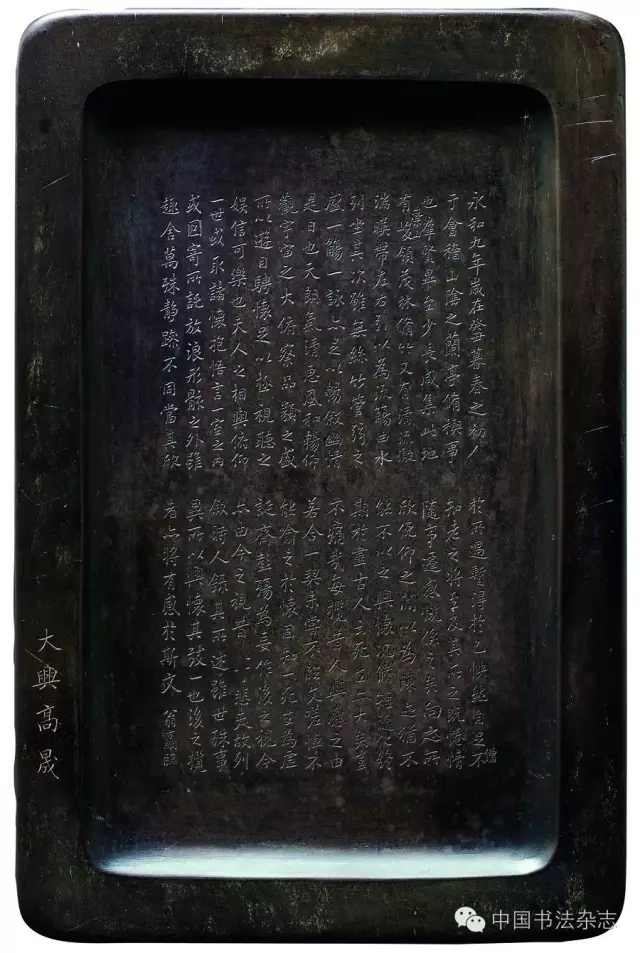 永和九年歲在癸丑暮春之初會
于會稽山陰之蘭亭脩稧事
也羣賢畢至少長咸集此地
有崇山峻領茂林脩竹又有清流激
湍暎帶左右引以為流觴曲水
列坐其次雖無絲竹管弦之
盛一觴一詠亦足以暢敘幽情
是日也天朗氣清惠風和暢仰
觀宇宙之大俯察品類之盛
所以遊目騁懷足以極視聽之
娛信可樂也夫人之相與俯仰
一世或取諸懷抱悟言一室之內
或因寄所託放浪形骸之外雖
趣舍萬殊靜躁不同當其欣
於所遇蹔得於己快然自足不
知老之將至及其所之既惓情
隨事遷感慨係之矣向之所
欣俛仰之閒以為陳迹猶不
能不以之興懷況脩短隨化終
期於盡古人云死生亦大矣豈
不痛哉每攬昔人興感之由
若合一契未嘗不臨文嗟悼不
能喻之於懷固知一死生為虛
誕齊彭殤為妄作後之視今
亦由今之視昔悲夫故列
敘時人錄其所述雖世殊事
異所以興懷其致一也後之攬
者亦將有感於斯文 翁 臨
大興高晟
中国书法杂志